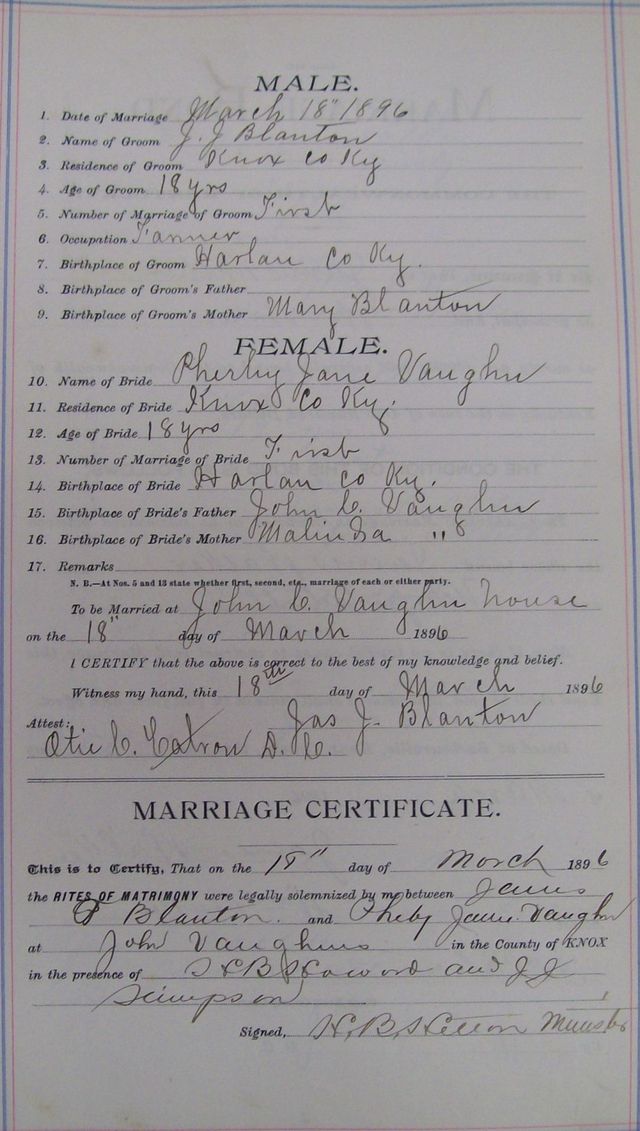 MALE.
1. Date of Marriage March 18" 1896
2. Name of Groom J. J Blanton
3. Residence of Groom Knox Co Ky
4. Age of Groom 18 yrs
5. Number of Marriage of Groom First
6. Occupation Farmer
7. Birthplace of Groom Harlan Co Ky.
8. Birthplace of Groom's Father
9. Birthplace of Groom's Mother Mary Blanton
FEMALE.
10. Name of Bride Jane Vaughn
11. Residence of Bride Knox Co Ky.
12. Age of Bride 18 yrs
13. Number of Marriage of Bride First
14. Birthplace of Bride Harlan Co Ky.
15. Birthplace of Bride's Father John C. Vaughn
16. Birthplace of Bride's Mother Malinda "
17. Remarks
N. B.—At Nos. 5 and 13 state whether first, second, etc., marriage of each or either party.
To be Married at John C. Vaughn house
on the 18" day of March 1896
I CERTIFY that the above is correct to the best of my knowledge and belief.
Witness my hand, this 18th day of March 1896
Jas J. Blanton
Attest:
Otie C. Catron D. C.
MARRIAGE CERTIFICATE.
This is to Certify, That on the day of March 1896
the RITES OF MATRIMONY were legally solemnized by me between James
Blanton. and Pheby Jane Vaughn
at John Vaughns in the County of KNOX
in the presence of and J J
Simpson
Signed, H. B. Minister